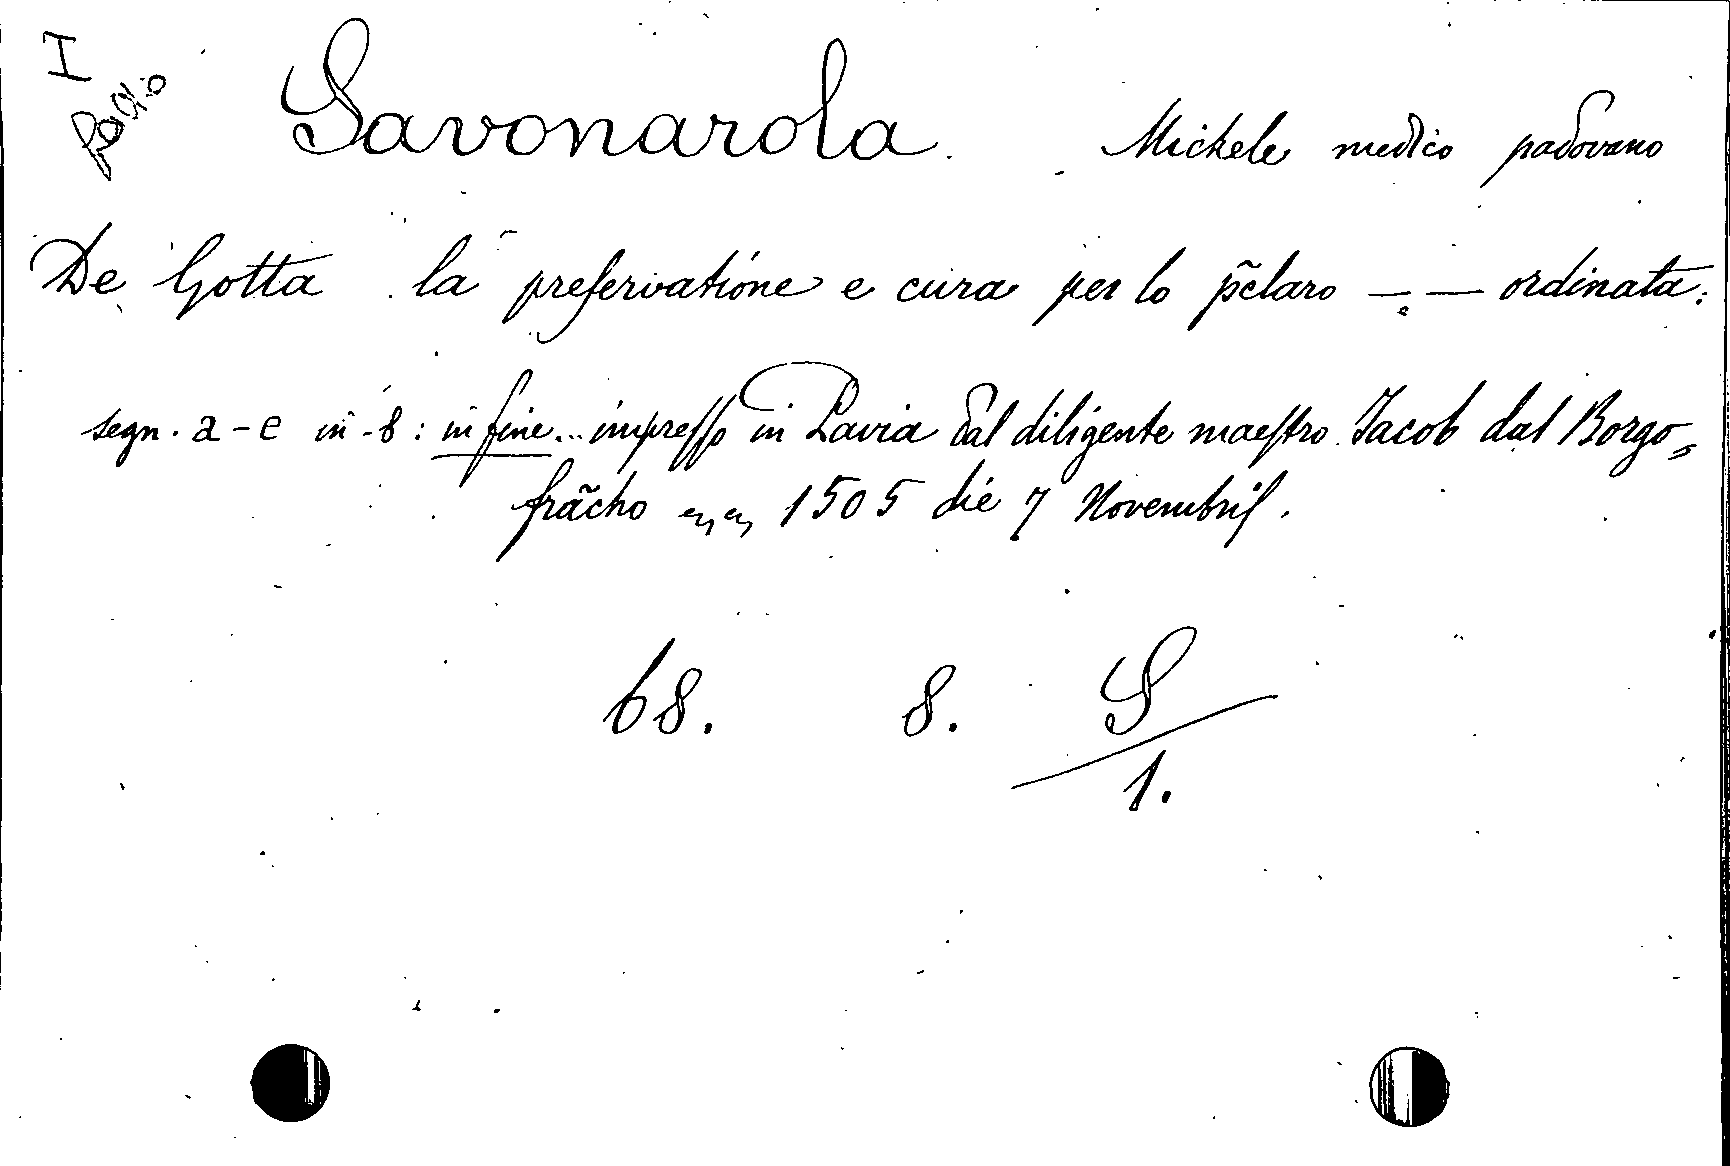 I
Savonarola. Michele medico padovano
De Gotta la preſervatione e cura per lo p̃claro — . — ordinata:
segn. a-e in-8: in fine... impreſſo in Pavia dal diligente maeſtro Jacob dal Borgo„
frãcho 1505 die 7 Novembriſ.
68. 8. S
1.